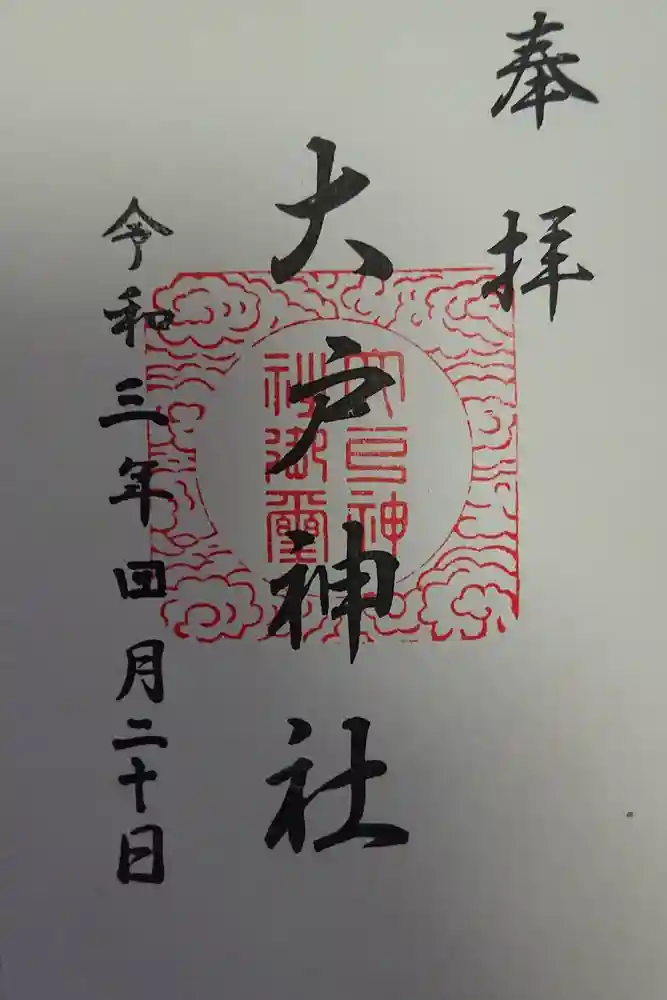 奉拝
大戸神社
大戸神
社御璽
令和三年四月二十日